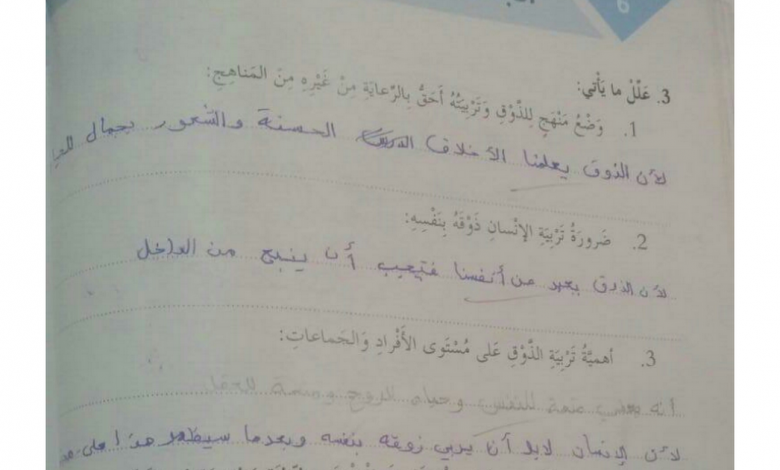 3. عَلِّلْ ما يَأْتي:
1. وَضْعُ مَنْهَجٍ لِلذَّوْقِ وَتَرْبِيَتُهُ أَحَقُّ بِالرِّعايَةِ مِنْ غَيْرِهِ مِنَ المَناهِجِ:
لأن الذوق يعلمنا الأخلاق الحسنة والشعور بجمال
2. ضَرورَةُ تَرْبِيَةِ الإِنْسانِ ذَوْقَهُ بِنَفْسِهِ:
لأن الذوق يعبر عن أنفسنا فتيجب أن ينبع من الداخل
3. أهميَّةُ تَرْبِيَةِ الذَّوْقِ عَلى مُسْتَوى الأَفْرادِ وَالجَماعاتِ:
أنه يعطي متعة للنفس وحياة الروح وصحة للعقل
لأن الانسان لابد أن يربي زوقه بنفسه وبعدما سيظهر هذا على